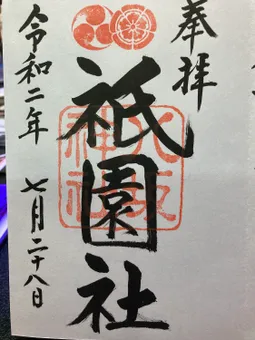 奉拝
祇園社
八坂神社
令和二年 七月二十八日